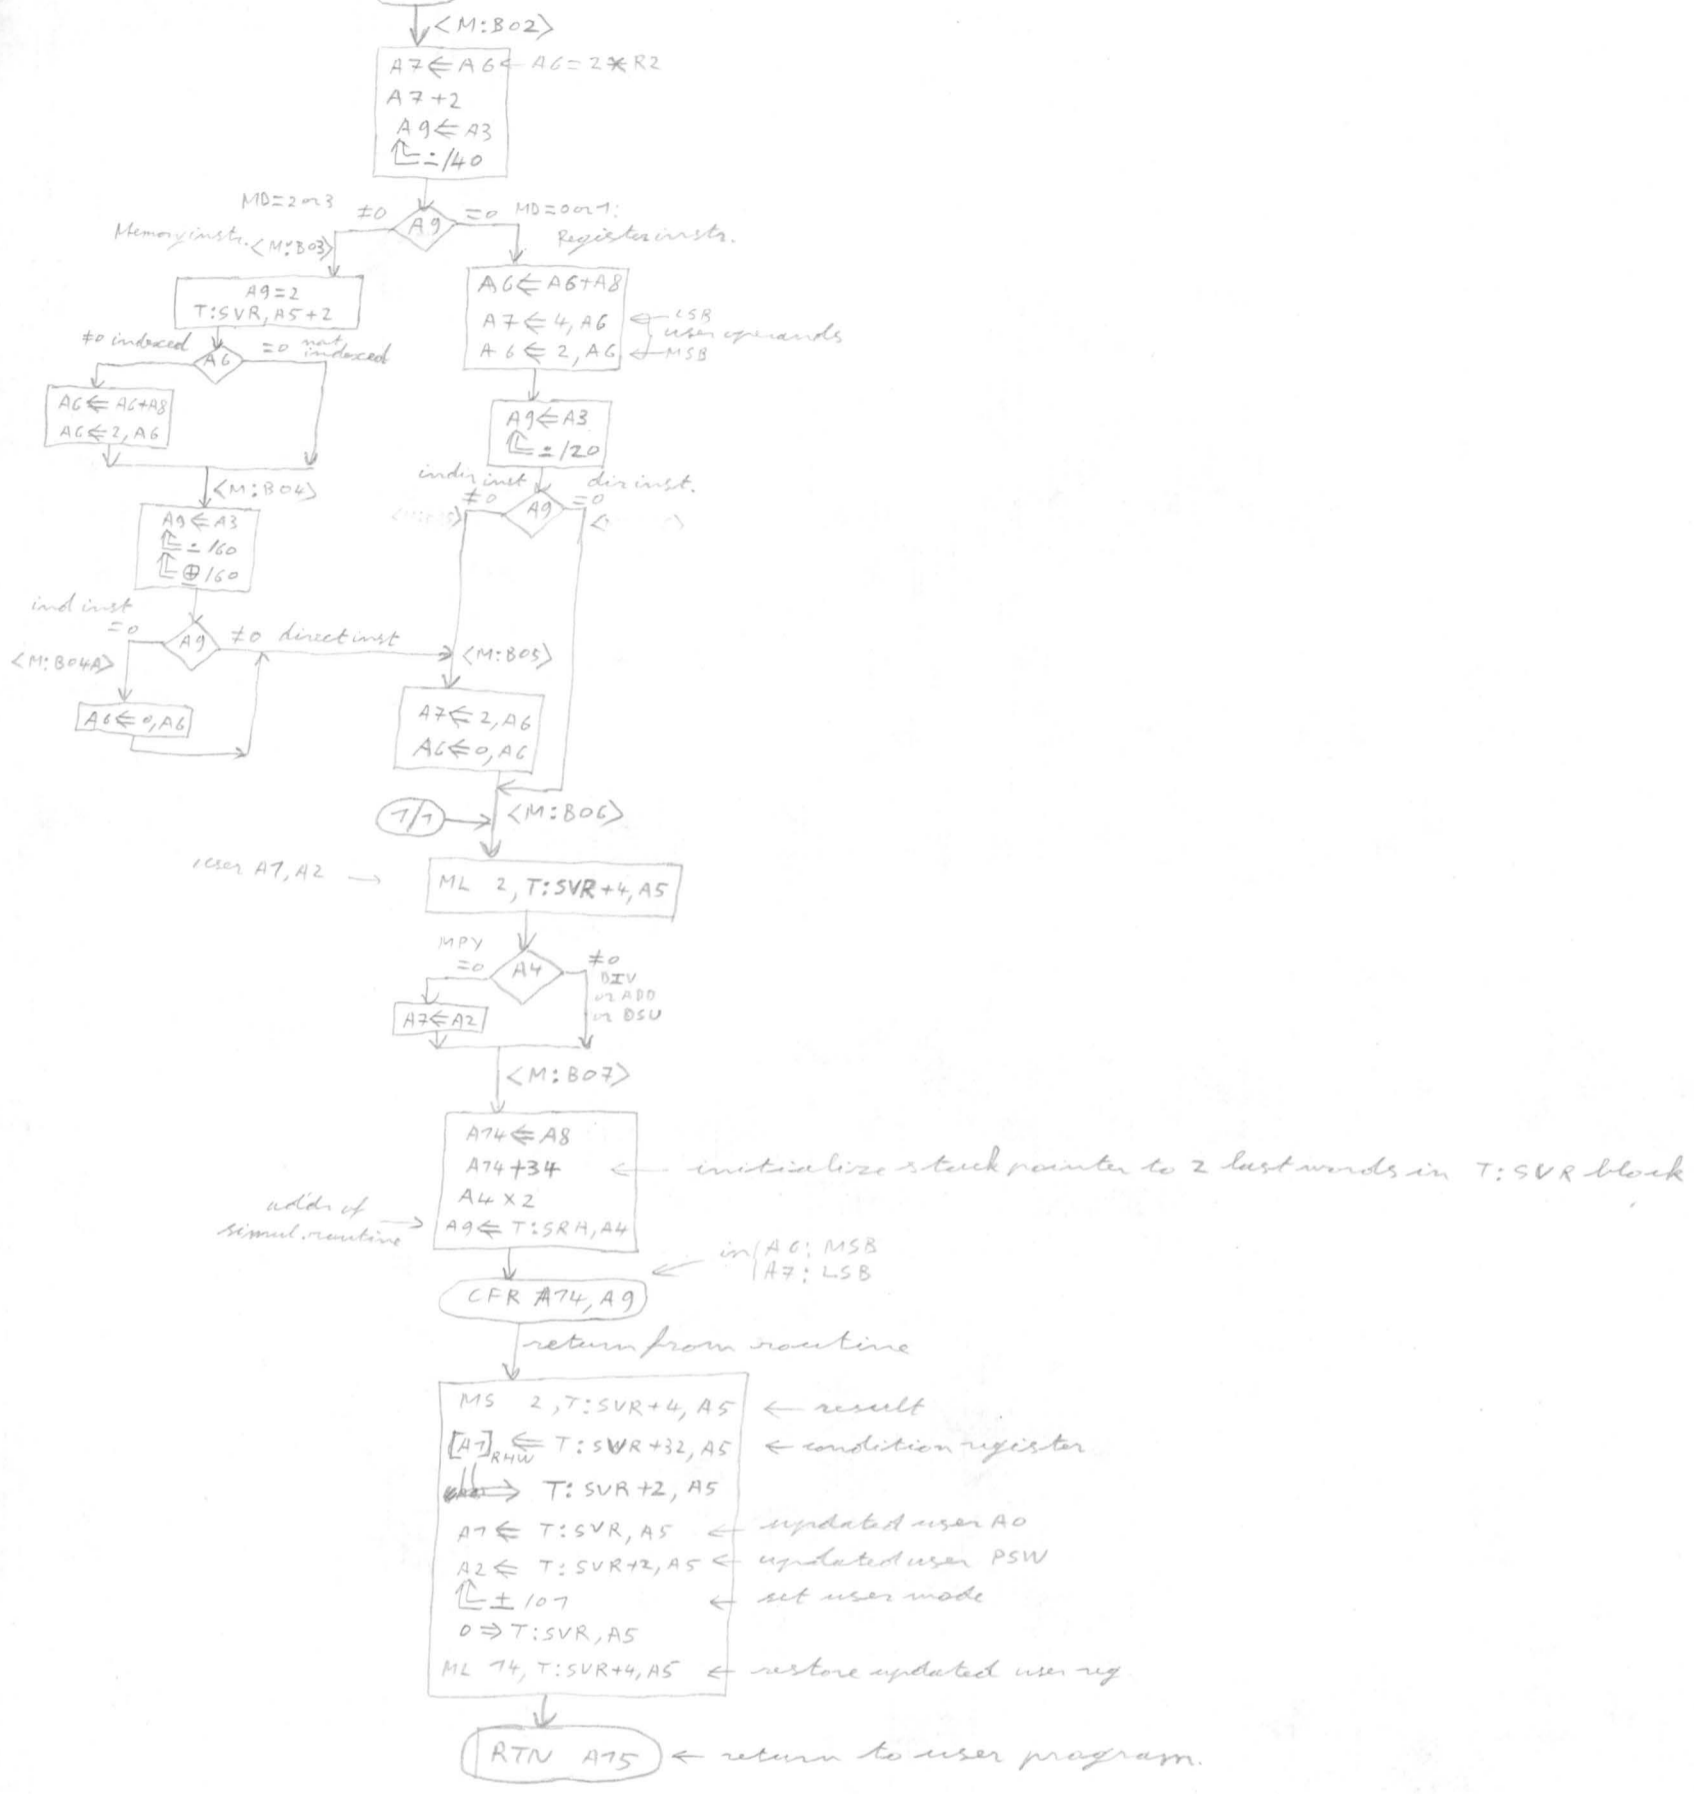 <M:B02>
A7⇐A6 ← A6=2*R2
A7+2
A9⇐A3
∸/40
MD=2 or 3 ≠0 A9 =0 MD=0 or 1:
Memory instr. <M:B03> Register instr.
A9=2
T:SVR, A5+2
≠0 indexed A6 =0 not indexed
A6⇐A6+A8
A6⇐2, A6
A6⇐A6+A8
A7⇐4, A6 ← LSB
user operands
A6⇐2, A6 ← MSB
A9⇐A3
∸/20
indir inst dir inst.
≠0 A9 =0
<M:B04>
A9⇐A3
∸/60
⊕/60
ind inst
=0 A9 ≠0 direct inst
<M:B04A> <M:B05>
A6⇐0, A6
A7⇐2, A6
A6⇐0, A6
1/1 <M:B06>
user A1, A2 → ML 2, T:SVR+4, A5
MPY
=0 A4 ≠0
DIV
or ADD
or DSU
A7⇐A2
<M:B07>
A14⇐A8
A14+34 ← initialize stack pointer to 2 last words in T:SVR block
A4×2
addr of
simul. routine → A9⇐T:SRH, A4
in A6: MSB
A7: LSB
CFR A14, A9
return from routine
MS 2, T:SVR+4, A5 ← result
[A1]RHW ⇐ T:SVR+32, A5 ← condition register
⇒ T:SVR+2, A5
A1⇐ T:SVR, A5 ← updated user A0
A2⇐ T:SVR+2, A5 ← updated user PSW
±/01 ← set user mode
0⇒T:SVR, A5
ML 14, T:SVR+4, A5 ← restore updated user reg
RTN A15 ← return to user program.